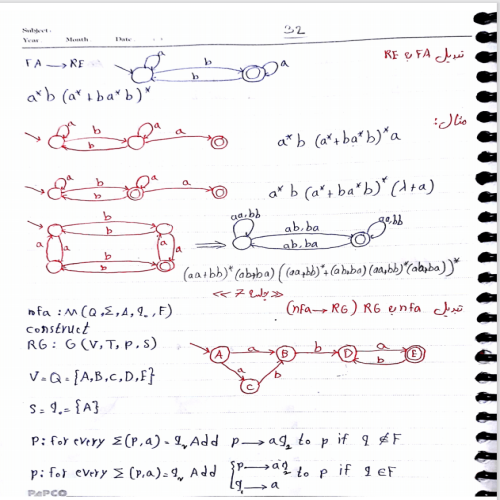 Subject.
Year Month Date
32
تبدیل FA به RE
FA → RE
a b b a
a*b (a* + ba*b)*
مثال:
a b b a a
a*b (a* + ba*b)* a
a b b a a
a*b (a* + ba*b)* (λ+a)
b b a a a a b b
⟹
aa,bb ab,ba ab,ba aa,bb
(aa+bb)*(ab+ba)((aa+bb)*+(ab+ba)(aa+bb)*(ab+ba))*
تبدیل nfa به RG (nfa → RG)
nfa : M(Q,Σ,Δ,q₀,F)
construct
RG: G(V,T,P,S)
A a B b D a E b
a C b
V=Q={A,B,C,D,E}
S=q₀={A}
P: for every Σ(p,a)=q, Add p→aq to p if q∉F
p: for every Σ(p,a)=q, Add {p→aq to p if q∈F
q→a
PAPCO